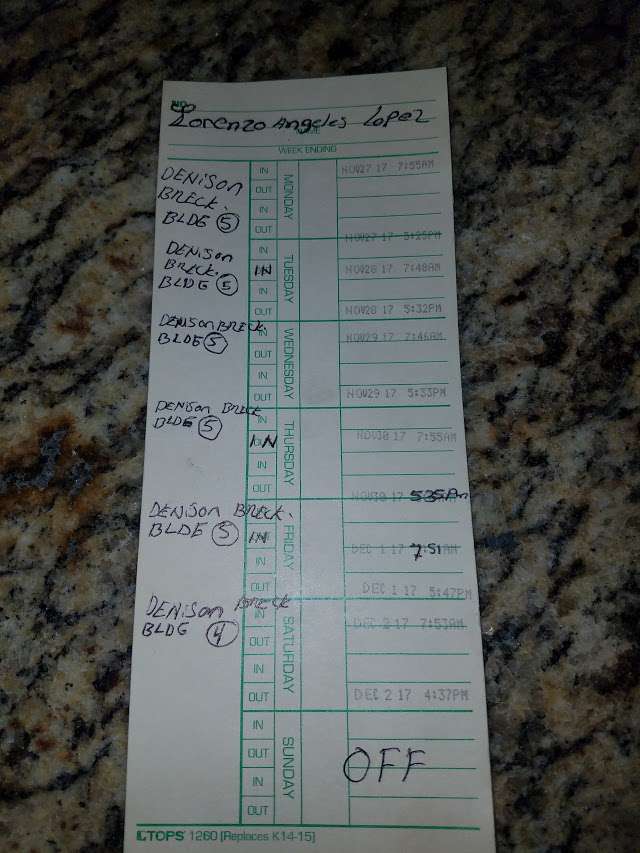 NO
Lorenzo Angeles Lopez
NAME
WEEK ENDING
DENISON
BRECK.
BLDG 5
IN
OUT
IN
OUT
MONDAY
NOV27 17 7:55AM
NOV27 17 5:25PM
DENISON
BRECK.
BLDG 5
IN
IN
IN
OUT
TUESDAY
NOV28 17 7:48AM
NOV28 17 5:32PM
DENISON BRECK
BLDG 5
IN
OUT
IN
OUT
WEDNESDAY
NOV29 17 7:46AM
NOV29 17 5:33PM
DENISON BRECK
BLDG 5
IN
IN
IN
OUT
THURSDAY
NOV30 17 7:55AM
NOV30 17 535Pm
DENISON BRECK.
BLDG 5
IN
IN
OUT
FRIDAY
DEC 1 17 7:51AM
DEC 1 17 5:47PM
DENISON BRECK
BLDG 4
IN
OUT
IN
OUT
SATURDAY
DEC 2 17 7:53AM
DEC 2 17 4:37PM
IN
OUT
IN
OUT
SUNDAY
OFF
TOPS 1260 [Replaces K14-15]